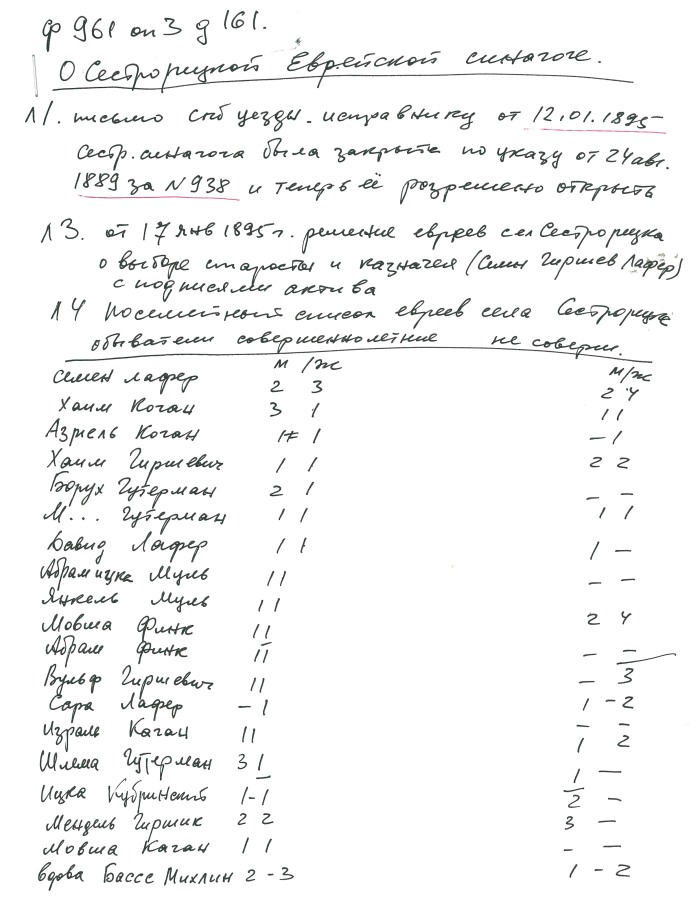 ф 961 оп 3 д 161.
О Сестрорецкой Еврейской синагоге.
л 1. письмо спб уездн. исправнику от 12.01.1895
Сестр. синагога была закрыта по указу от 24 авг.
1889 за N 938 и теперь её розрешено открыть
л 3. от 17 янв 1895 г. решение евреев сел Сестрорецка
о выборе старосты и казначея (Семен Гиршев Лафер)
с подписями актива
л 4 посемейный список евреев села Сестрорецк
обыватели совершеннолетние не соверш.
м / ж м/ж
Семен Лафер 2 3 2 4
Хаим Коган 3 1 1 1
Азриель Коган 1 1 – 1
Хаим Гиршевич 1 1 2 2
Борух Гутерман 2 1 – –
М... Гутерман 1 1 1 1
Давид Лафер 1 1 1 –
Абрам ицка Муль 1 1 – –
Янкель Муль 1 1
Мовша Финк 1 1 2 4
Абрам Финк 1 1 – –
Вульф Гиршевич 1 1 – 3
Сара Лафер – 1 1 – 2
Израиль Каган 1 1 – –
1 2
Шлема Гутерман 3 1 1 –
Ицка Кубринский 1 – 1 2 –
Мендель Гиршик 2 2 3 –
Мовша Каган 1 1 – –
вдова Бассе Михлин 2 – 3 1 – 2